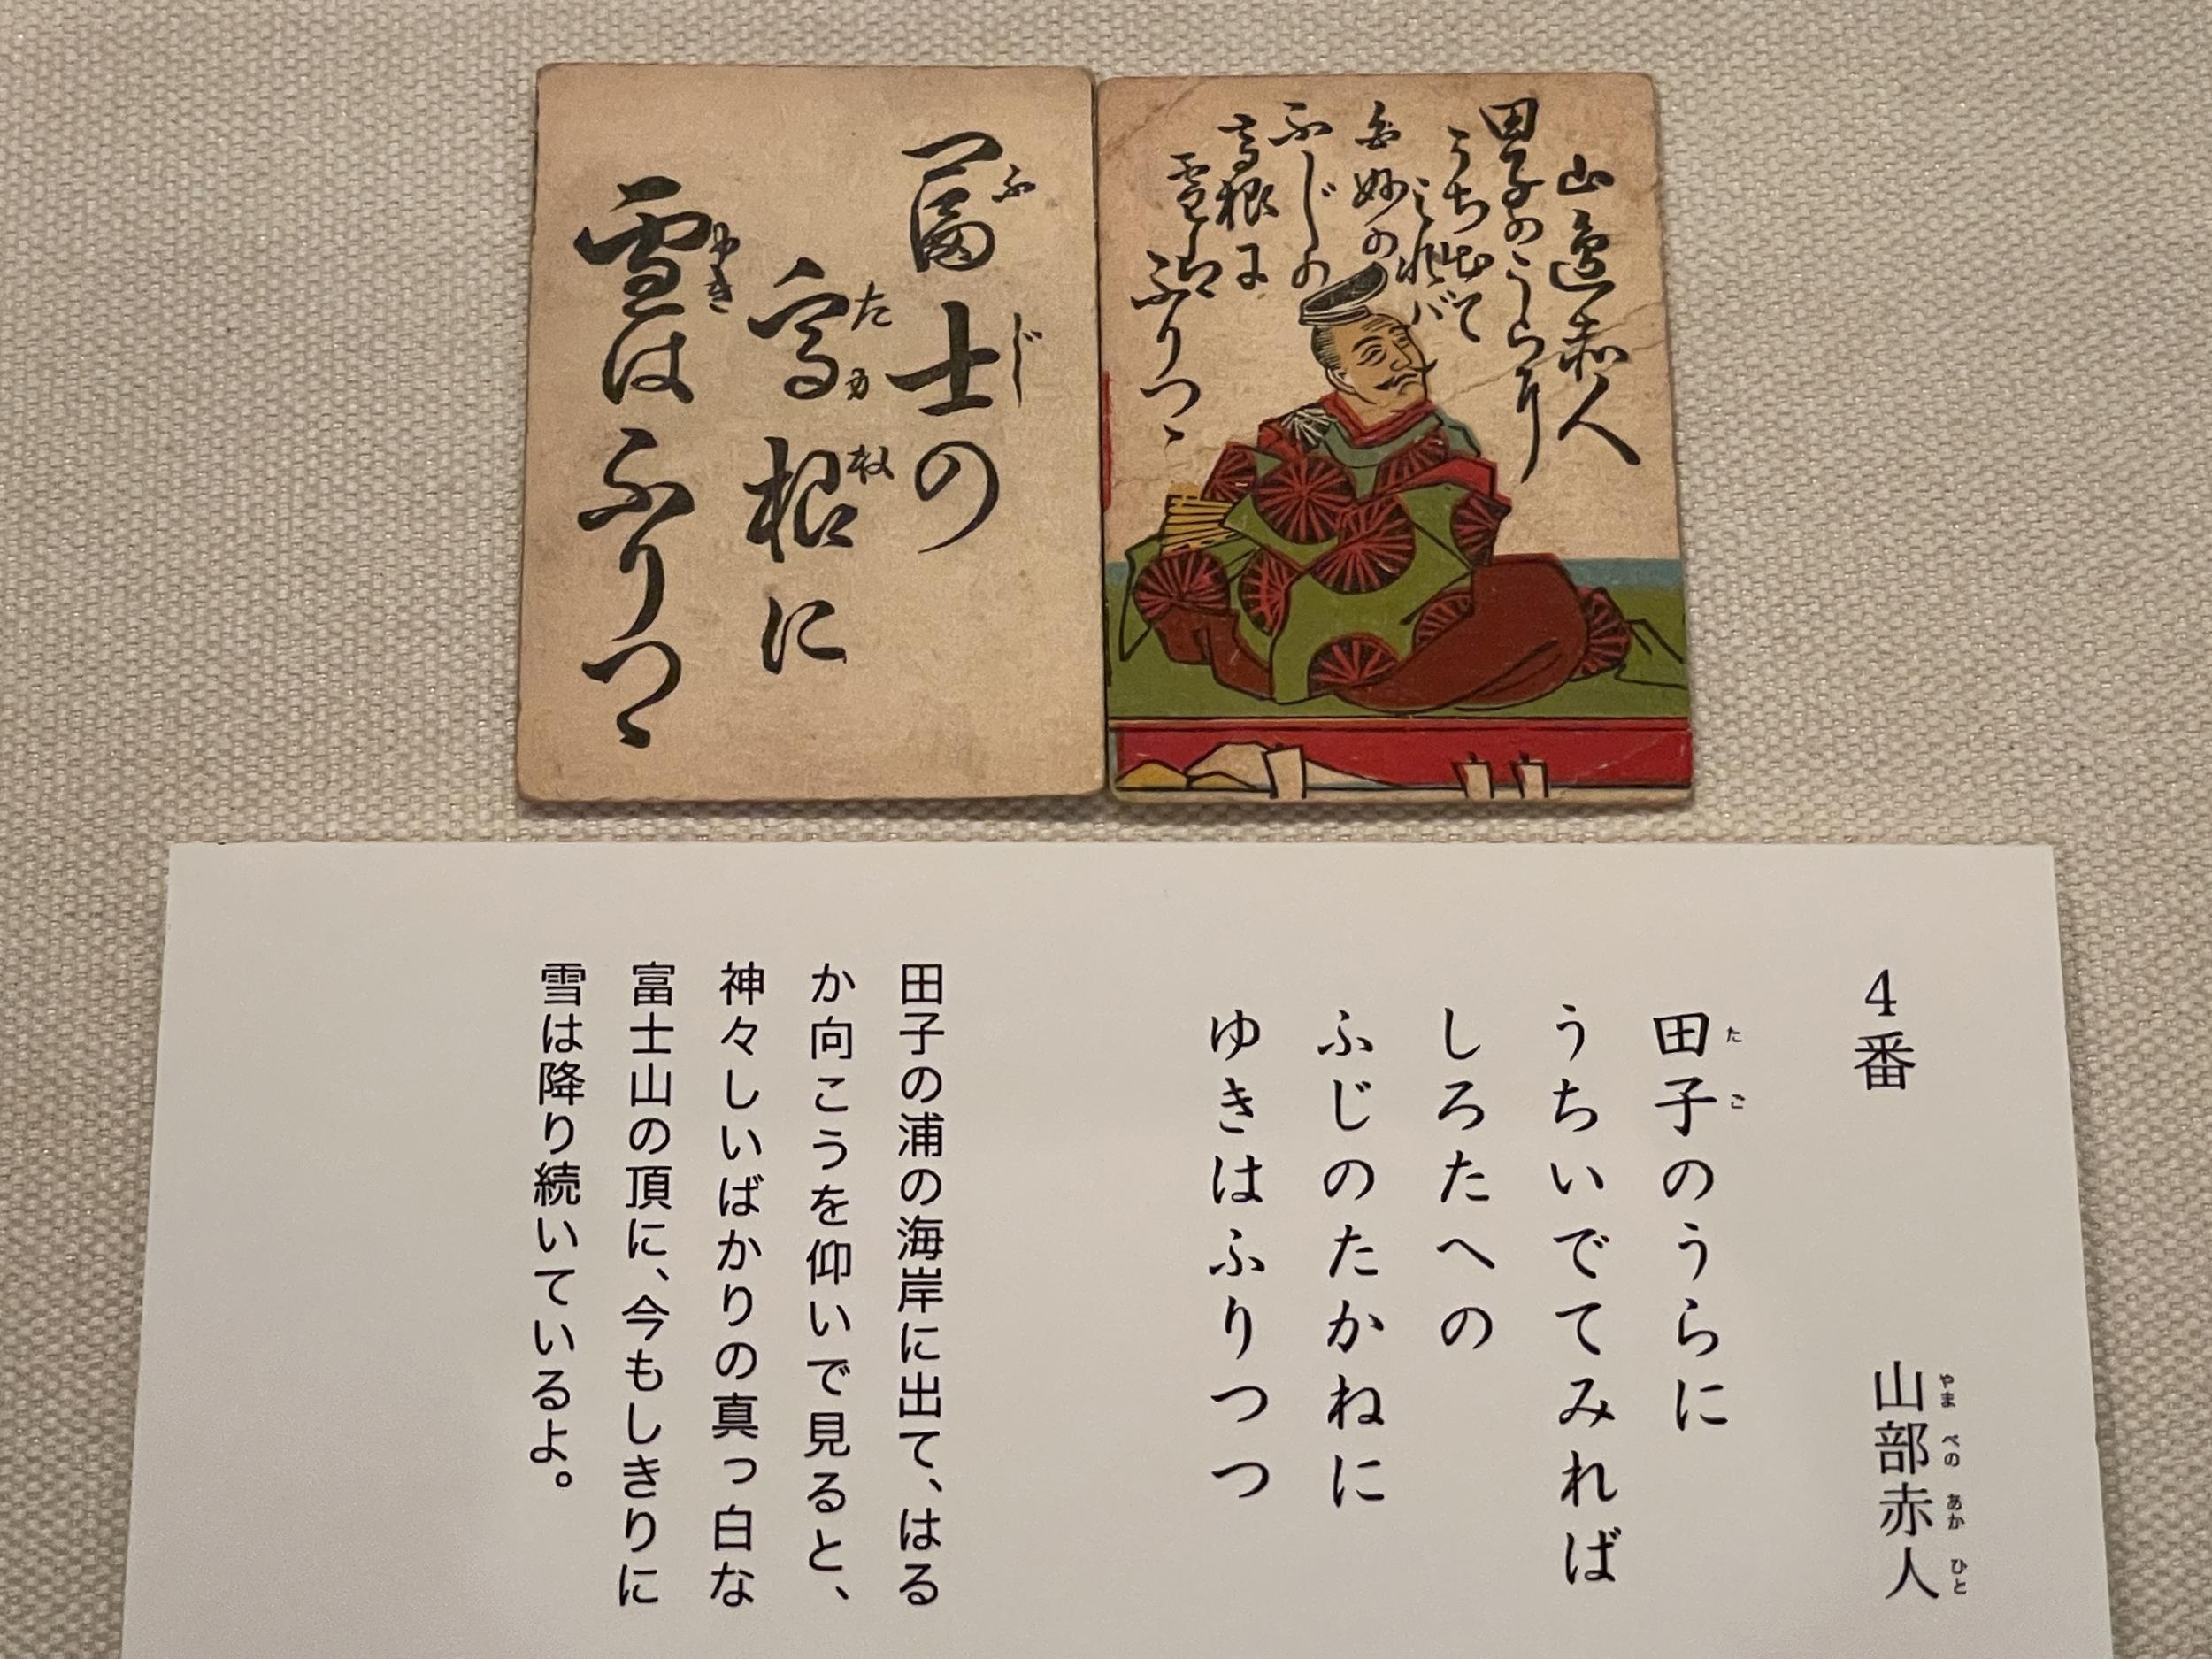 山邊赤人
田子のうらに
うち出て
みれバ
白妙の
ふじの
高根に
雪は
ふりつゝ
冨士の
ふじ
高根に
たかね
雪はふりつゝ
ゆき
4番 山部赤人
やまべのあかひと
田子のうらに
たこ
うちいでてみれば
しろたへの
ふじのたかねに
ゆきはふりつつ
田子の浦の海岸に出て、はる
か向こうを仰いで見ると、
神々しいばかりの真っ白な
富士山の頂に、今もしきりに
雪は降り続いているよ。